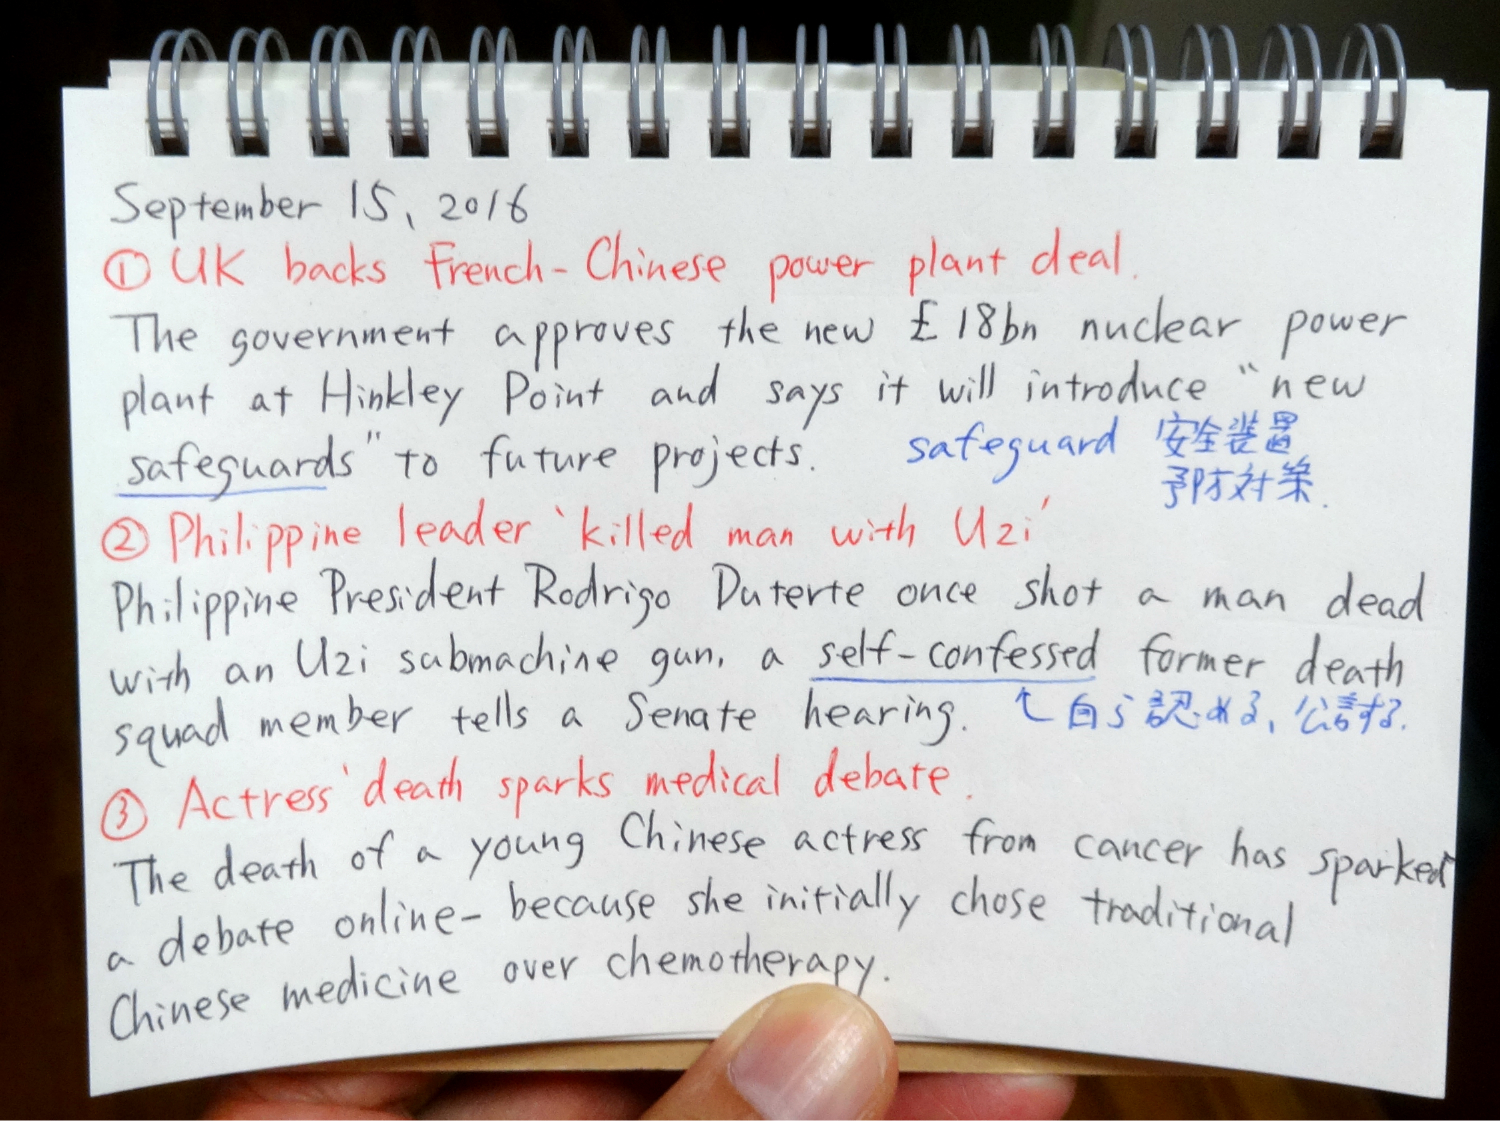 September 15, 2016
① UK backs French-Chinese power plant deal.
The government approves the new £18bn nuclear power
plant at Hinkley Point and says it will introduce "new
safeguards" to future projects. safeguard 安全装置
予防対策.
② Philippine leader 'killed man with Uzi'
Philippine President Rodrigo Duterte once shot a man dead
with an Uzi submachine gun, a self-confessed former death
squad member tells a Senate hearing. ↑自ら認める、公言する.
③ Actress' death sparks medical debate.
The death of a young Chinese actress from cancer has sparked
a debate online- because she initially chose traditional
Chinese medicine over chemotherapy.